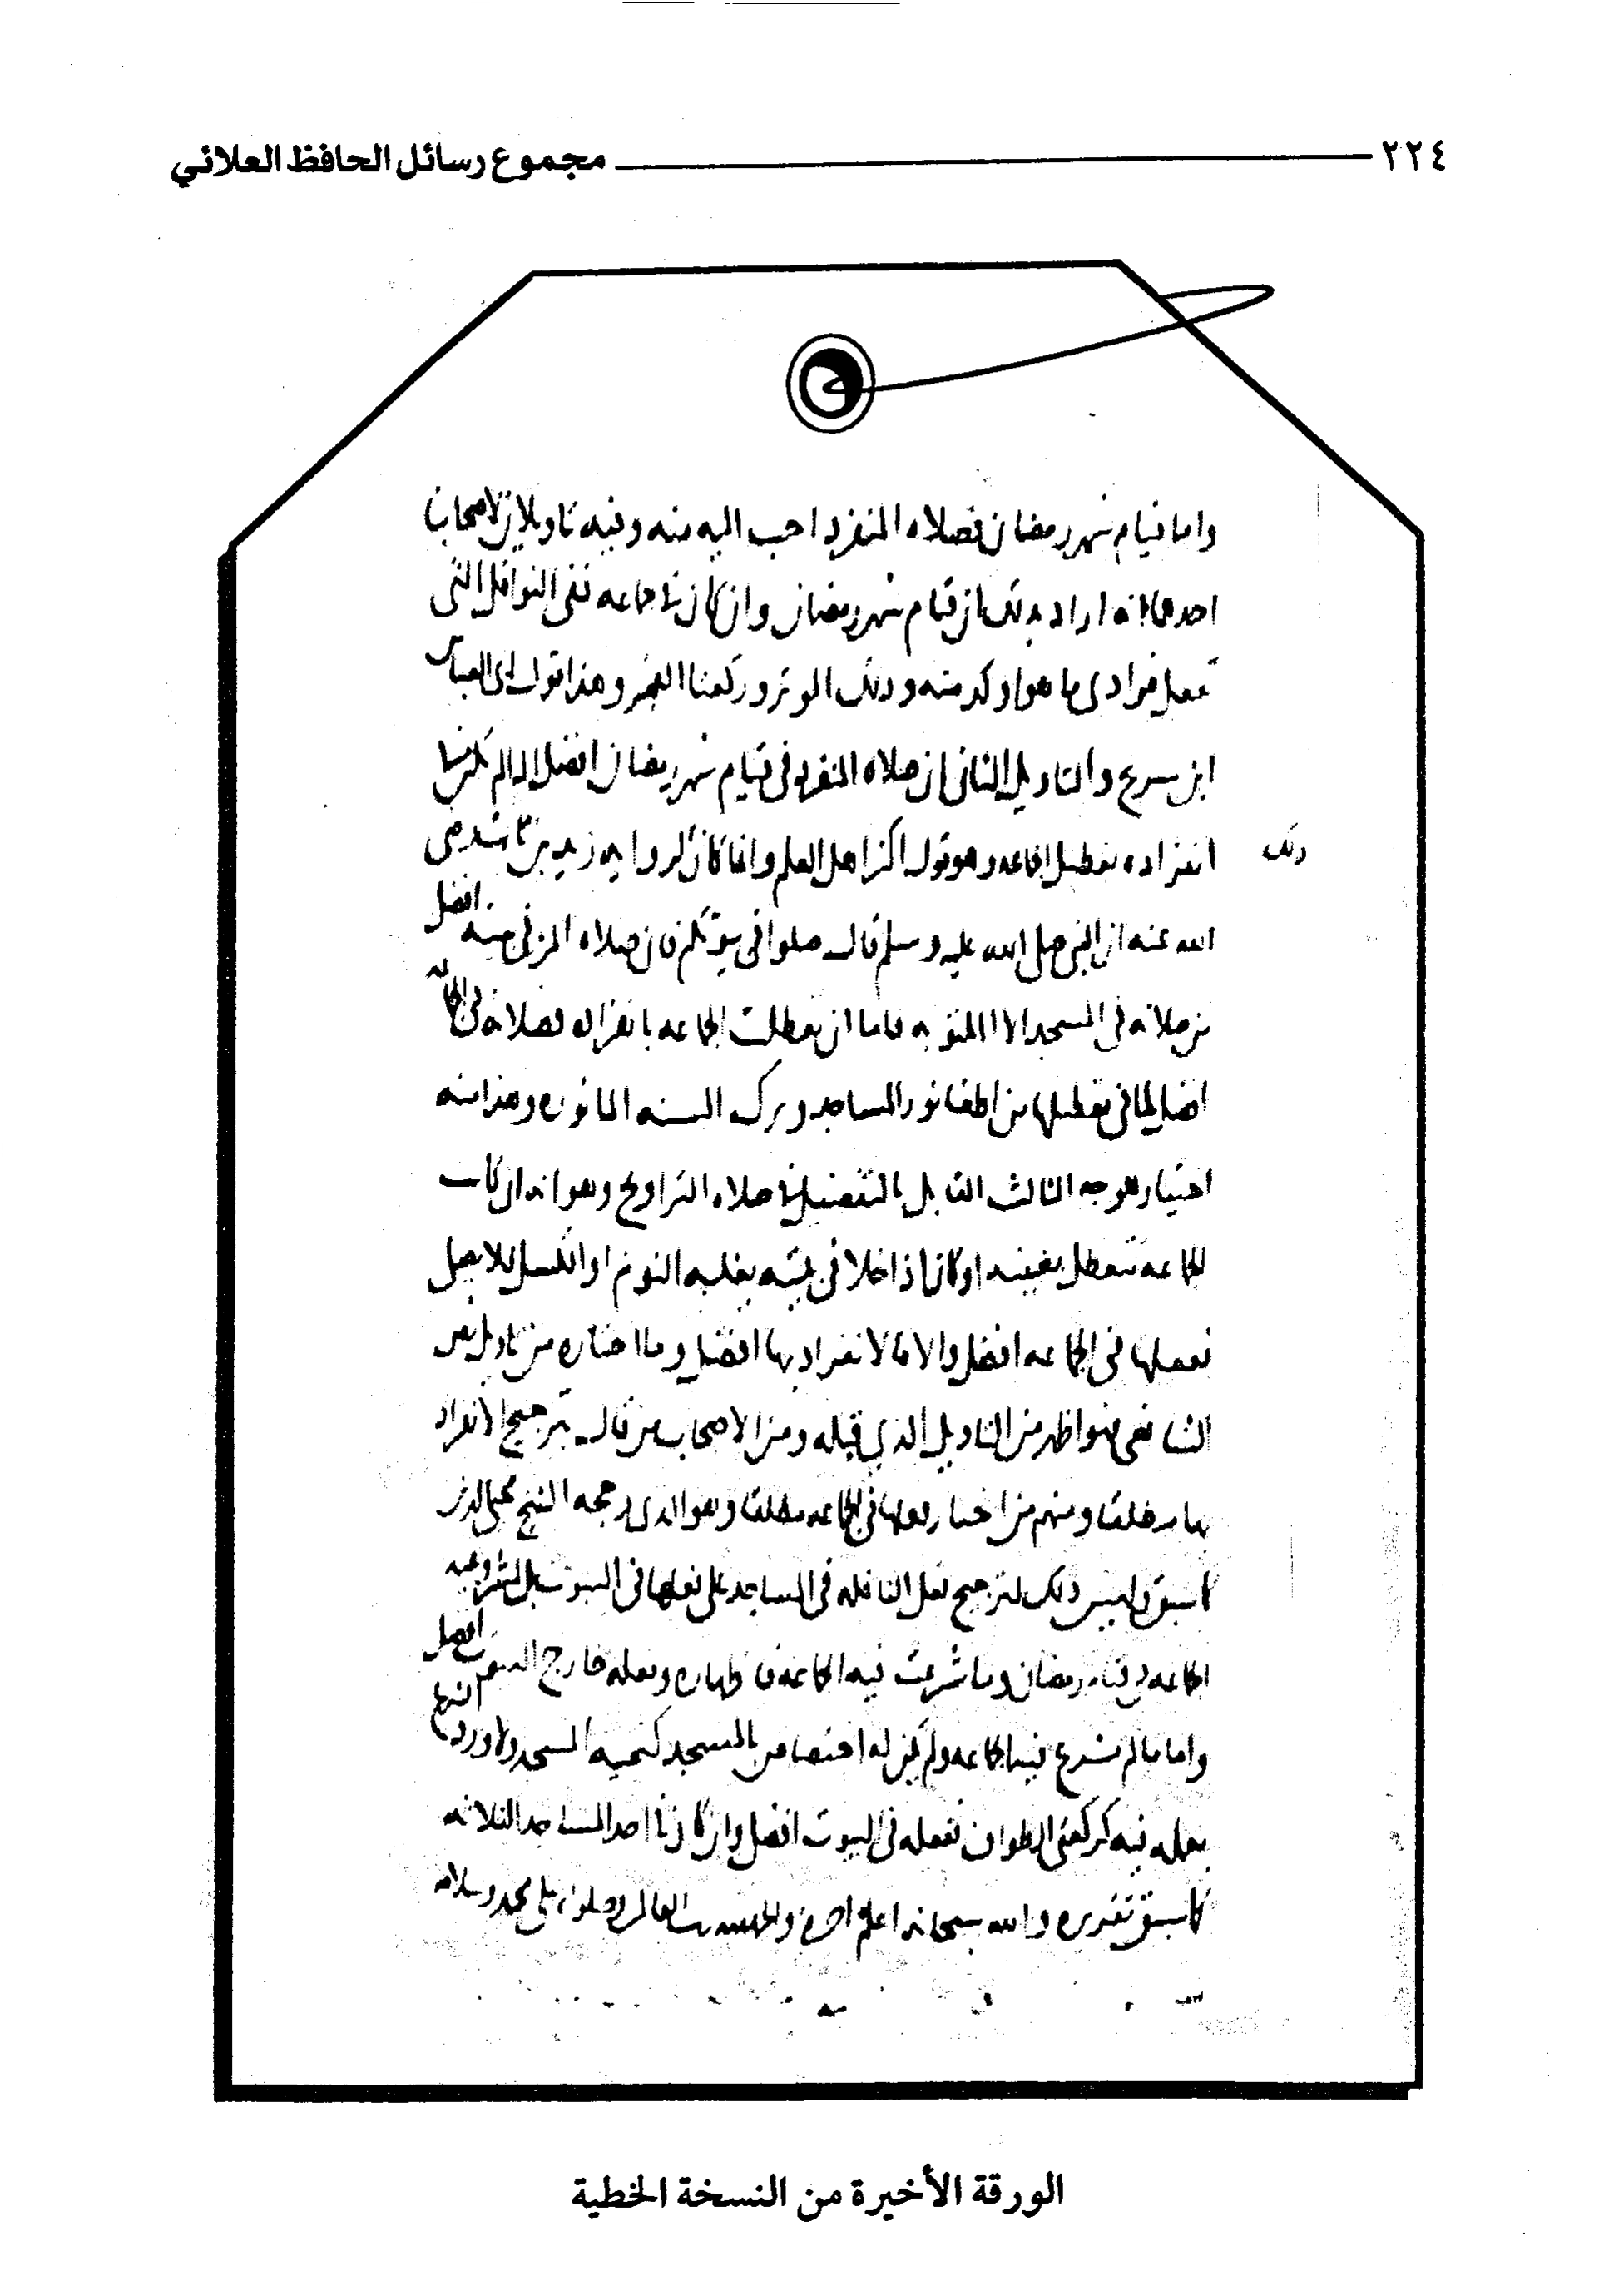 ٢٢٤ مجموع رسائل الحافظ العلائي
واما قيام شهر رمضان فصلاه المنفرد احب اليه منه وفيه تاويلان لاصحابنا
احدهما انه اراد بذلك ان قيام شهر رمضان وان كان في جماعه ففي النوافل التي
تفعل فرادى ما هو اوكد منه وذلك الوتر وركعتا الفجر وهذا قول ابي العباس
ابن سريج والتاويل الثاني ان صلاه المنفرد في قيام شهر رمضان افضل اذا لم يكن في
ذلك
انفراده تعطيل الجماعه وهو قول اكثر اهل العلم وانما كان كذلك لروايه زيد بن ثابت رضي
الله عنه ان النبي صلى الله عليه وسلم قال صلوا في بيوتكم فان صلاه المرء في بيته افضل
من صلاته في المسجد الا المكتوبه فاما ان تعطلت الجماعه بانفراده فصلاته في الجماعه
افضل لما في تعطيلها من اطفا نور المساجد وترك السنه الماثوره وهذا منه
اختيار للوجه الثالث القايل بالتفضيل في صلاه التراويح وهو انه ان كانت
الجماعه تتعطل بغيبته او كان اذا خلا في بيته يغلبه النوم او الكسل فلا يصل
ففعلها في الجماعه افضل والا فالانفراد بها افضل وما اختاره من تاويل نص
الشافعي فهو اظهر من التاويل الذي قبله ومن الاصحاب من قال بترجيح الانفراد
بها مطلقا ومنهم من اختار فعلها في الجماعه مطلقا وهو الذي رجحه الشيخ محيي الدين
كما سبق وليس ذلك لترجيح فعل النافله في المساجد على فعلها في البيوت بل لمشروعيه
الجماعه في قيام رمضان وما شرعت فيه الجماعه فاظهاره وفعله خارج البيوت افضل
واما ما لم تشرع فيه الجماعه ولم يكن له اختصاص بالمسجد كتحيه المسجد ولا ورد
فعله فيه كركعتي الطواف ففعله في البيوت افضل وان كان في احد المساجد الثلاثه
كما سبق تقريره والله سبحانه اعلم اخره والحمد لله رب العالمين وصلواته على محمد وسلامه
الورقة الأخيرة من النسخة الخطية